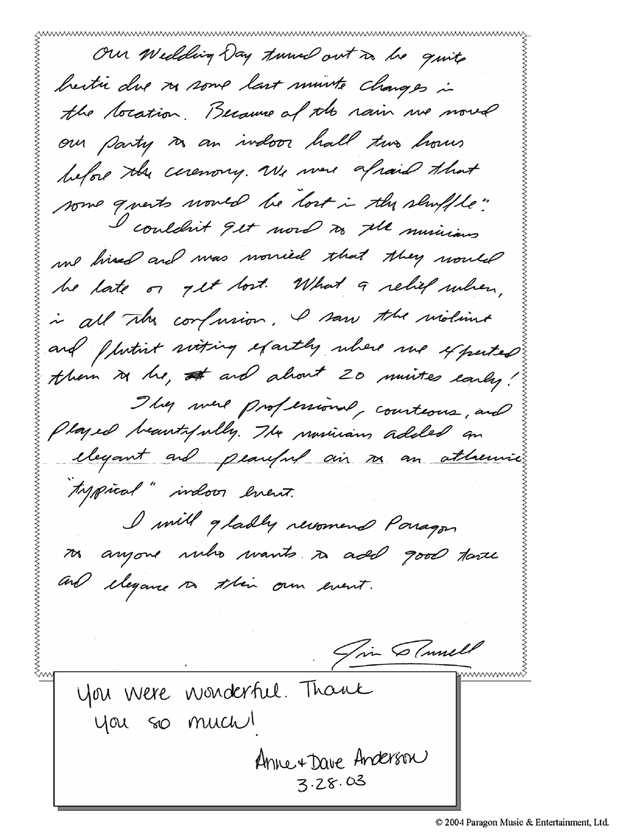 Our Wedding Day turned out to be quite
hectic due to some last minute changes in
the location. Because of the rain we moved
our party to an indoor hall two hours
before the ceremony. We were afraid that
some guests would be "lost in the shuffle".
I couldn't get word to the musicians
we hired and was worried that they would
be late or get lost. What a relief when,
in all the confusion, I saw the violinist
and flutist sitting exactly where we expected
them to be, and about 20 minutes early!
They were professional, courteous, and
played beautifully. The musicians added an
elegant and peaceful air to an otherwise
"typical" indoor event.
I will gladly recomend Paragon
to anyone who wants to add good taste
and elegance to their own event.
Jim
You were wonderful. Thank
you so much!
Anne + Dave Anderson
3.28.03
© 2004 Paragon Music & Entertainment, Ltd.